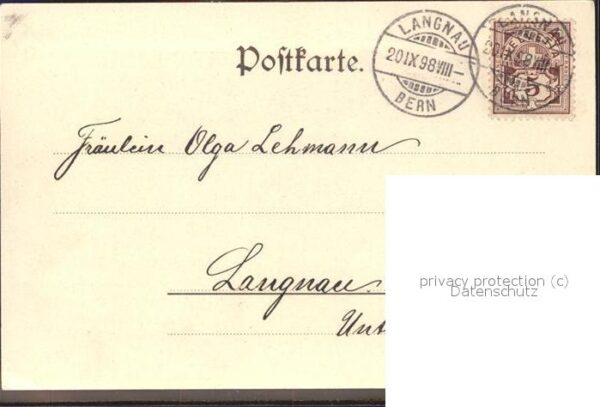 LANGNAU
20 IX 98 VIII–
BERN
Postkarte.
5
Fräulein Olga Lehmann
Langnau.
Unt
privacy protection (c)
Datenschutz